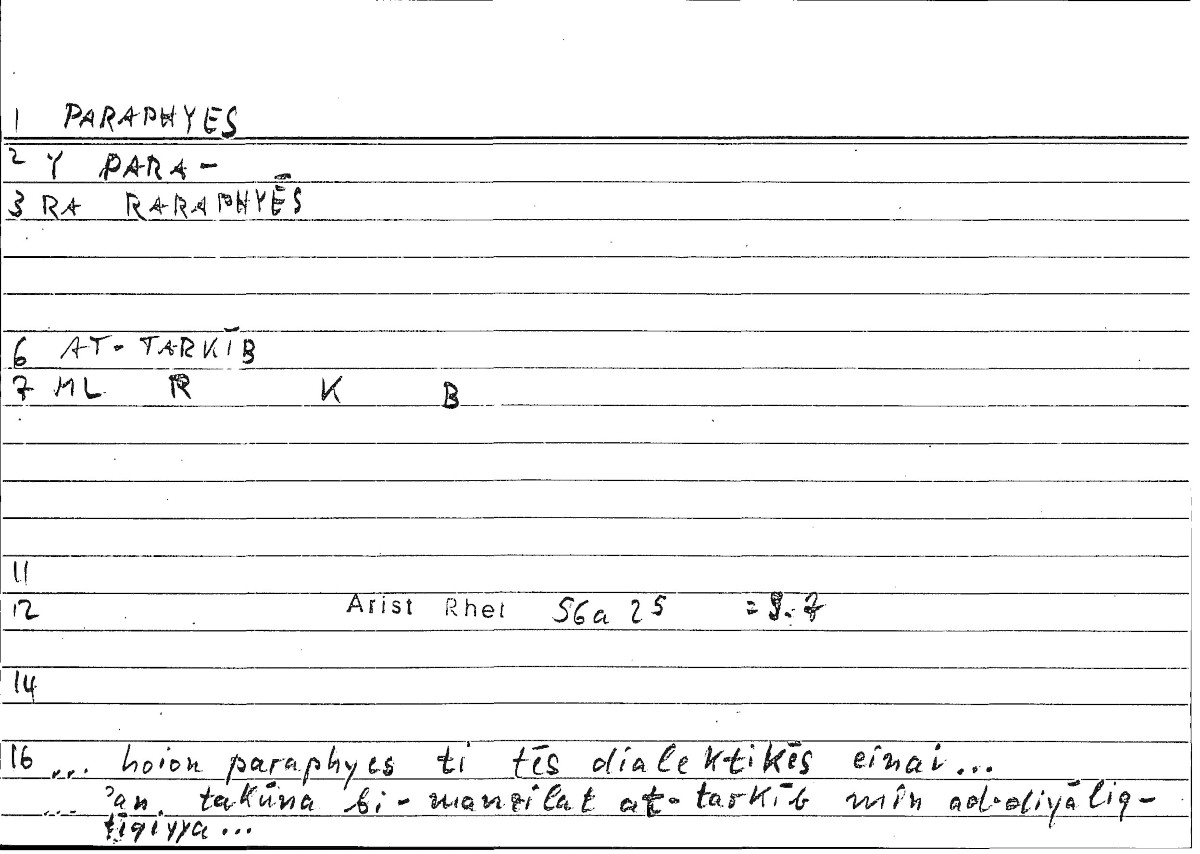 1 PARAPHYES
2 Y PARA-
3 RA RARAPHYĒS
6 AT-TARKĪB
7 ML R K B
11
12 Arist Rhet 56a 25 = 9.7
14
16 ... hoion paraphyes ti tēs dialektikēs einai...
... ʾan takūna bi-manzilat at-tarkīb min ad-diyāliq-
ṭīqiyya...